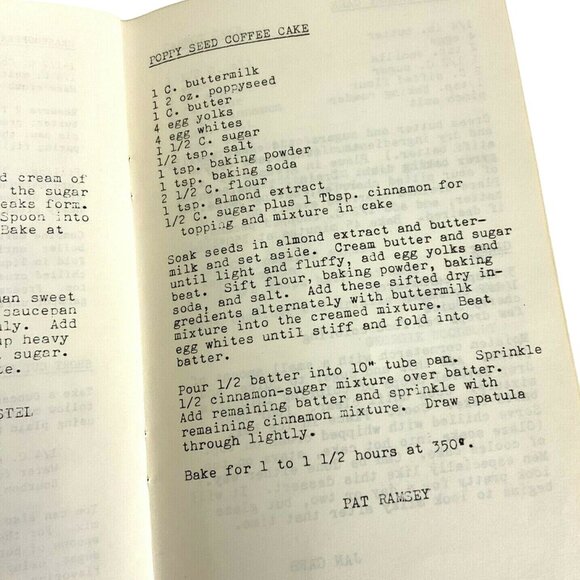 d cream of
the sugar
eaks form.
Spoon into
Bake at
an sweet
saucepan
ly. Add
up heavy
sugar.
te.
STEL
POPPY SEED COFFEE CAKE
1 C. buttermilk
1 2 oz. poppyseed
1 C. butter
4 egg yolks
4 egg whites
1 1/2 C. sugar
1/2 tsp. salt
1 tsp. baking powder
1 tsp. baking soda
2 1/2 C. flour
1 tsp. almond extract
1/2 C. sugar plus 1 Tbsp. cinnamon for
topping and mixture in cake
Soak seeds in almond extract and butter-
milk and set aside. Cream butter and sugar
until light and fluffy, add egg yolks and
beat. Sift flour, baking powder, baking
soda, and salt. Add these sifted dry in-
gredients alternately with buttermilk
mixture into the creamed mixture. Beat
egg whites until stiff and fold into
batter.
Pour 1/2 batter into 10" tube pan. Sprinkle
1/2 cinnamon-sugar mixture over batter.
Add remaining batter and sprinkle with
remaining cinnamon mixture. Draw spatula
through lightly.
Bake for 1 to 1 1/2 hours at 350°.
PAT RAMSEY